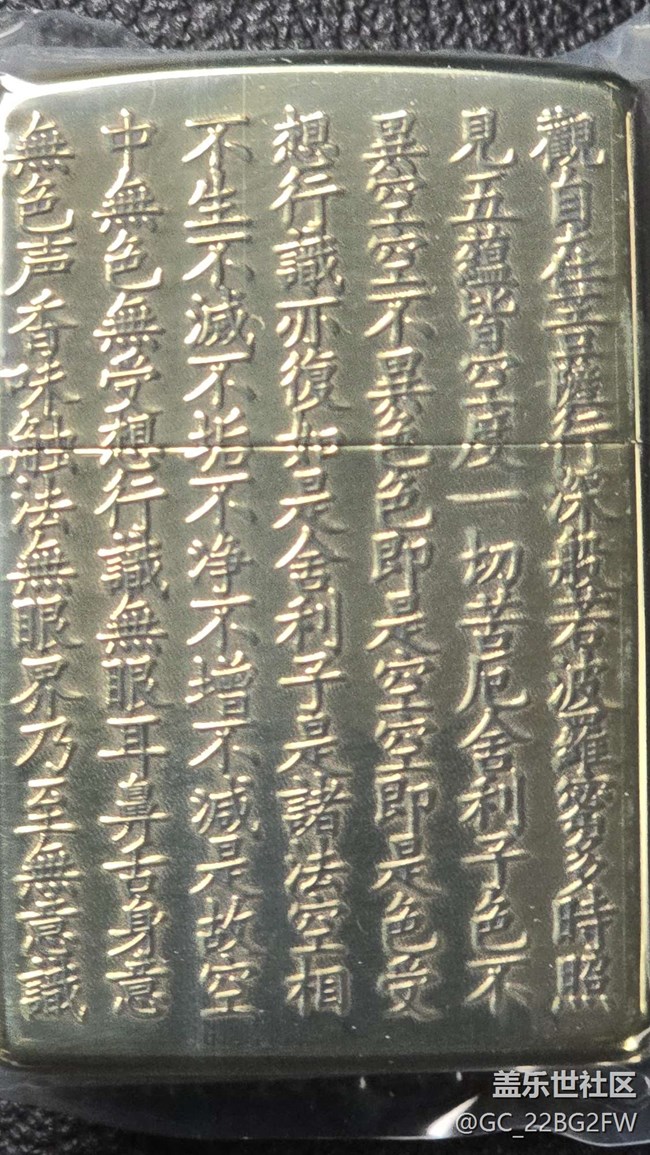 觀自在菩薩行深般若波羅蜜多時照
見五蘊皆空度一切苦厄舍利子色不
異空空不異色色即是空空即是色受
想行識亦復如是舍利子是諸法空相
不生不滅不垢不净不增不減是故空
中無色無受想行識無眼耳鼻舌身意
無色声香味触法無眼界乃至無意識
盖乐世社区
@GC_22BG2FW